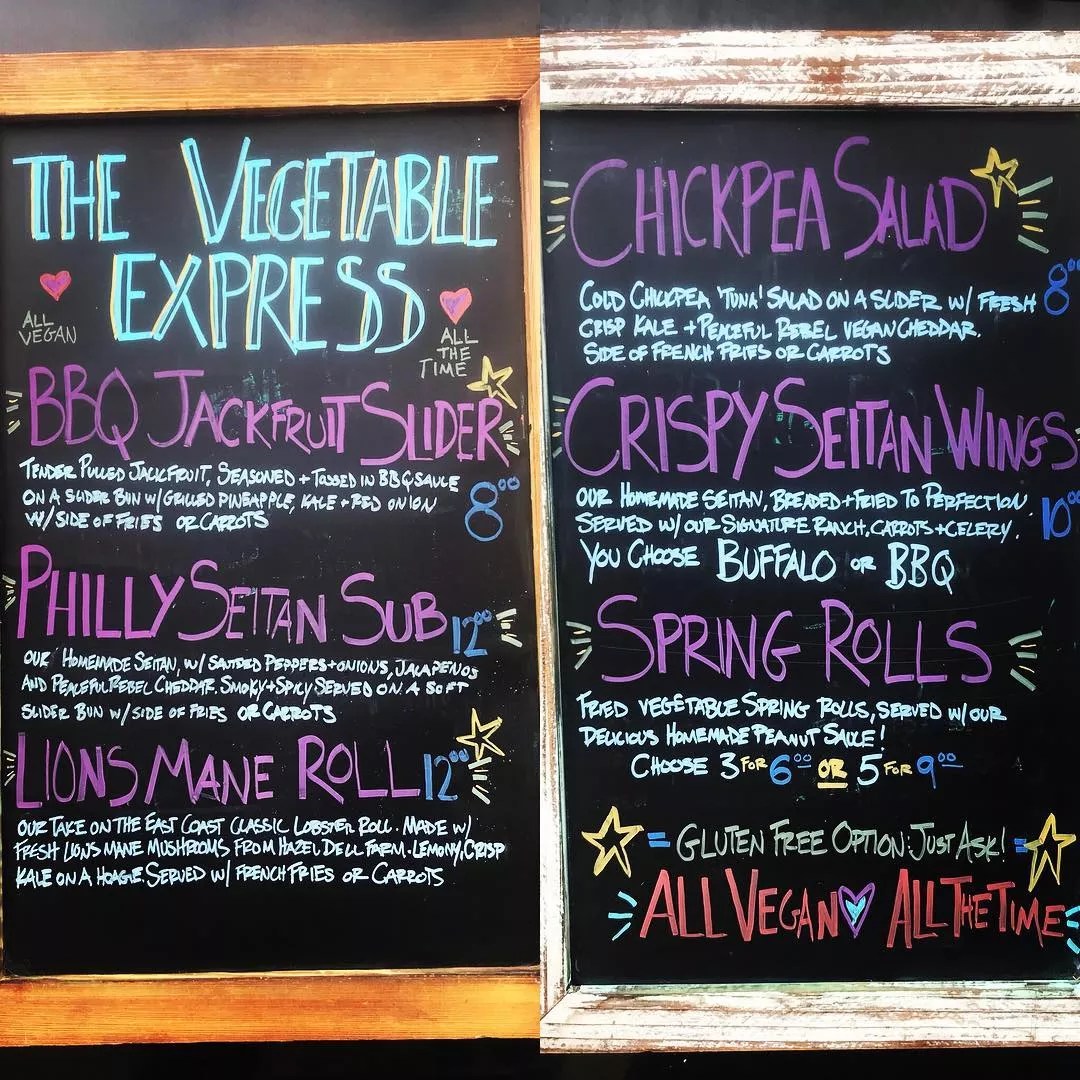 THE VEGETABLE
EXPRESS
ALL
VEGAN
ALL
THE
TIME
BBQ JACKFRUIT SLIDER
TENDER PULLED JACKFRUIT, SEASONED + TOSSED IN BBQ SAUCE
ON A SLIDER BUN W/ GRILLED PINEAPPLE, KALE + RED ONION
W/ SIDE OF FRIES OR CARROTS
8⁰⁰
PHILLY SEITAN SUB 12⁰⁰
OUR HOMEMADE SEITAN, W/ SAUTEED PEPPERS + ONIONS, JALAPENOS
AND PEACEFUL REBEL CHEDDAR. SMOKY + SPICY SERVED ON A SOFT
SLIDER BUN W/ SIDE OF FRIES OR CARROTS
LIONS MANE ROLL 12⁰⁰
OUR TAKE ON THE EAST COAST CLASSIC LOBSTER ROLL. MADE W/
FRESH LIONS MANE MUSHROOMS FROM HAZEL DELL FARM. LEMONY, CRISP
KALE ON A HOAGIE. SERVED W/ FRENCH FRIES OR CARROTS
CHICKPEA SALAD
8⁰⁰
COLD CHICKPEA 'TUNA' SALAD ON A SLIDER W/ FRESH
CRISP KALE + PEACEFUL REBEL VEGAN CHEDDAR.
SIDE OF FRENCH FRIES OR CARROTS
CRISPY SEITAN WINGS
OUR HOMEMADE SEITAN, BREADED + FRIED TO PERFECTION.
SERVED W/ OUR SIGNATURE RANCH, CARROTS + CELERY.
10⁰⁰
YOU CHOOSE BUFFALO OR BBQ
SPRING ROLLS
FRIED VEGETABLE SPRING ROLLS, SERVED W/ OUR
DELICIOUS HOMEMADE PEANUT SAUCE!
CHOOSE 3 FOR 6⁰⁰ OR 5 FOR 9⁰⁰
= GLUTEN FREE OPTION: JUST ASK! =
ALL VEGAN ALL THE TIME